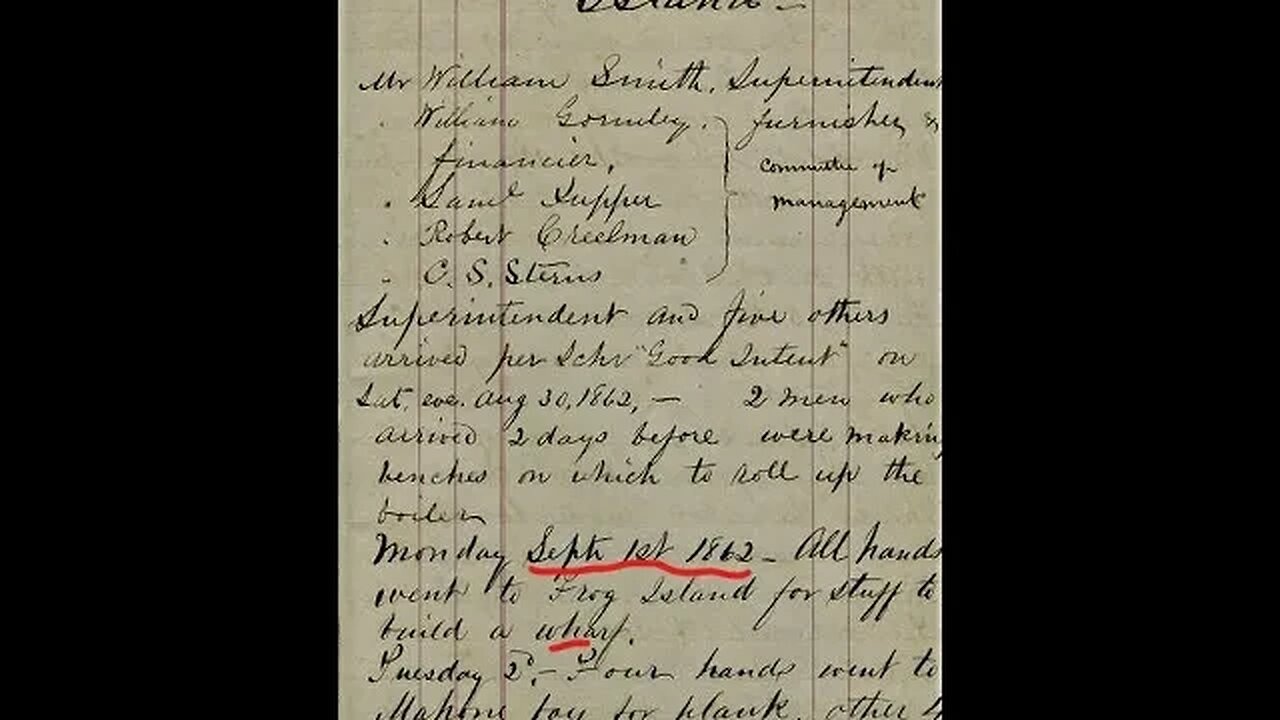 Island -
Mr William Smith, Superintendent
" William Gormley, furnisher &
financier, Committee of
" Saml Tupper management
" Robert Creelman
" C. S. Sterns
Superintendent and five others
arrived per Schr "Good Intent" on
Sat. eve. Aug 30, 1862, — 2 men who
arrived 2 days before were making
benches on which to roll up the
boiler
Monday Septr 1st 1862 - All hands
went to Frog Island for stuff to
build a wharf.
Tuesday 2d, - Four hands went to
Mahone bay for plank, other 4